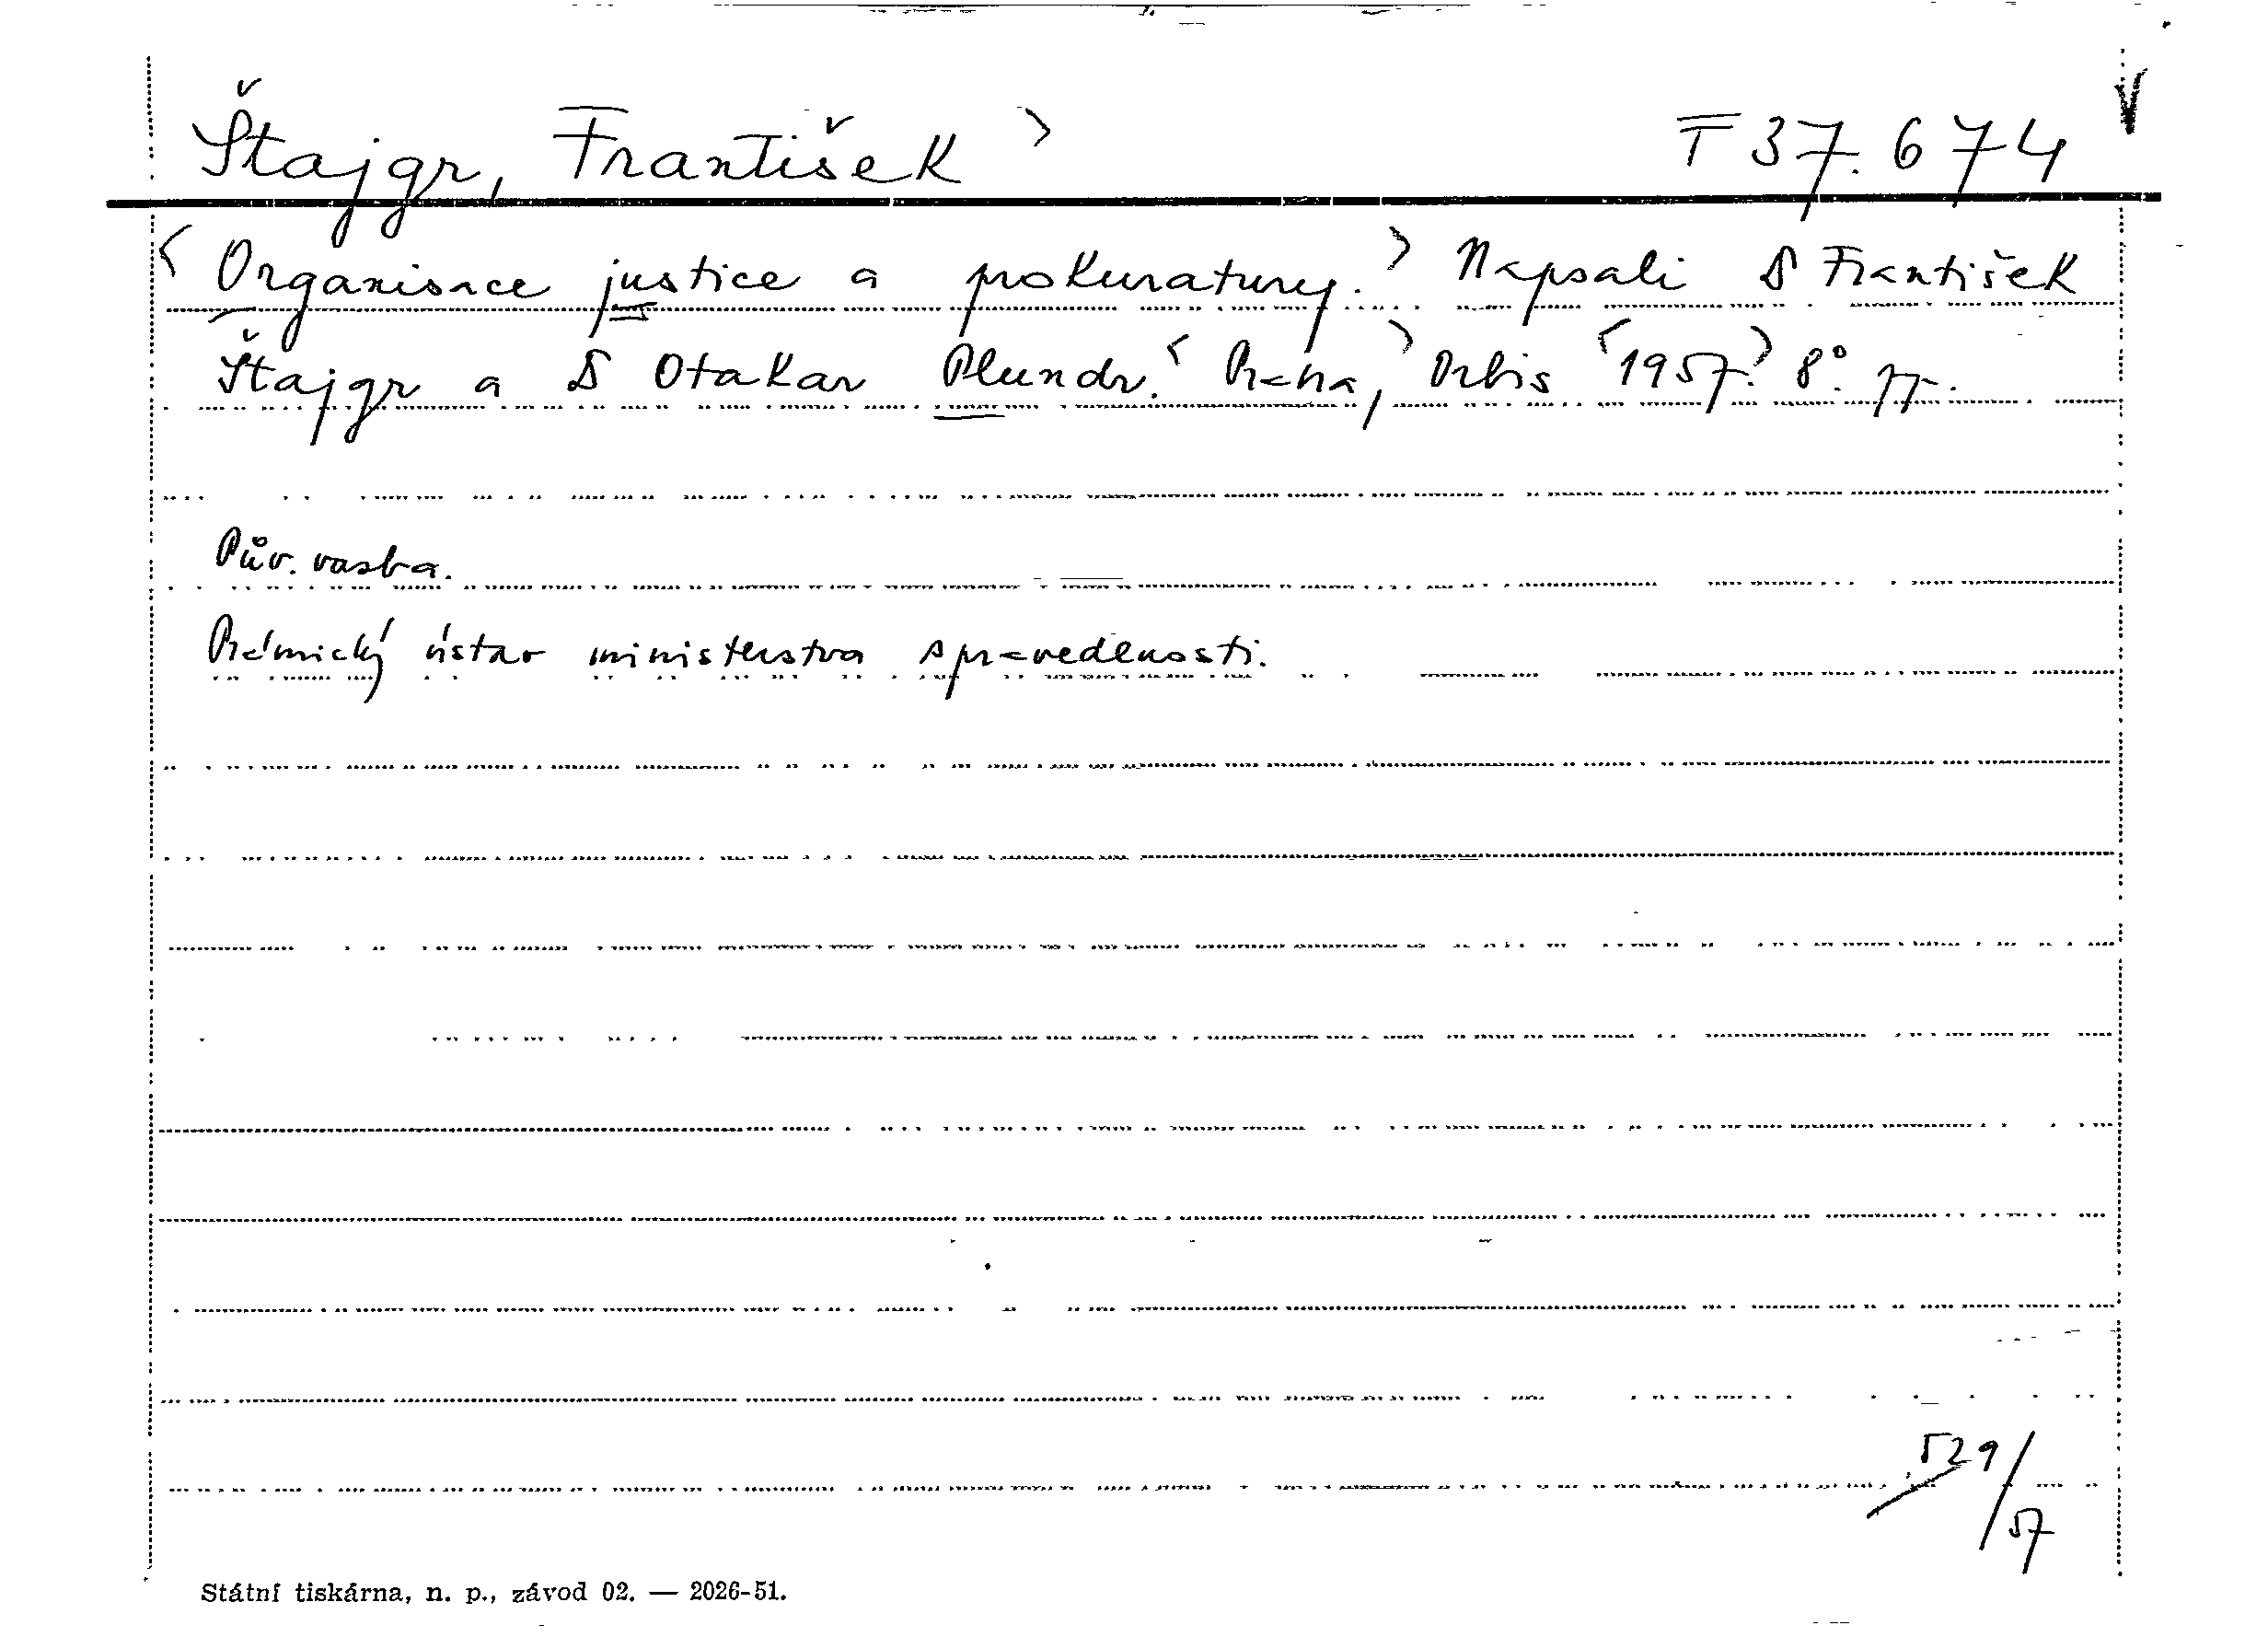 Štajgr, František > F 37.674 V
< Organisace justice a prokuratury. > Napsali František
Štajgr a Otakar Plundr. < Praha, > Orbis < 1957. > 8°.
Pův. vazba.
Právnický ústav ministerstva spravedlnosti.
529/57
Státní tiskárna, n. p., závod 02. — 2026-51.